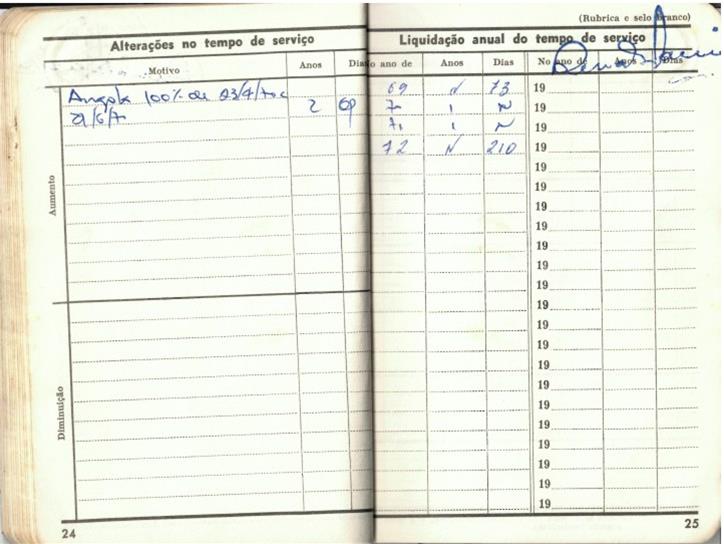 Alterações no tempo de serviço
Motivo Anos Dias
Aumento
Angola 100% de 23/4/70 a
2 69
21/6/72
Diminuição
24
(Rubrica e selo branco)
Liquidação anual do tempo de serviço
No ano de Anos Dias No ano de Anos Dias
69 N 73 19
7 1 N 19
71 1 N 19
72 N 210 19
19
19
19
19
19
19
19
19
19
19
19
19
19
19
19
19
19
19
25